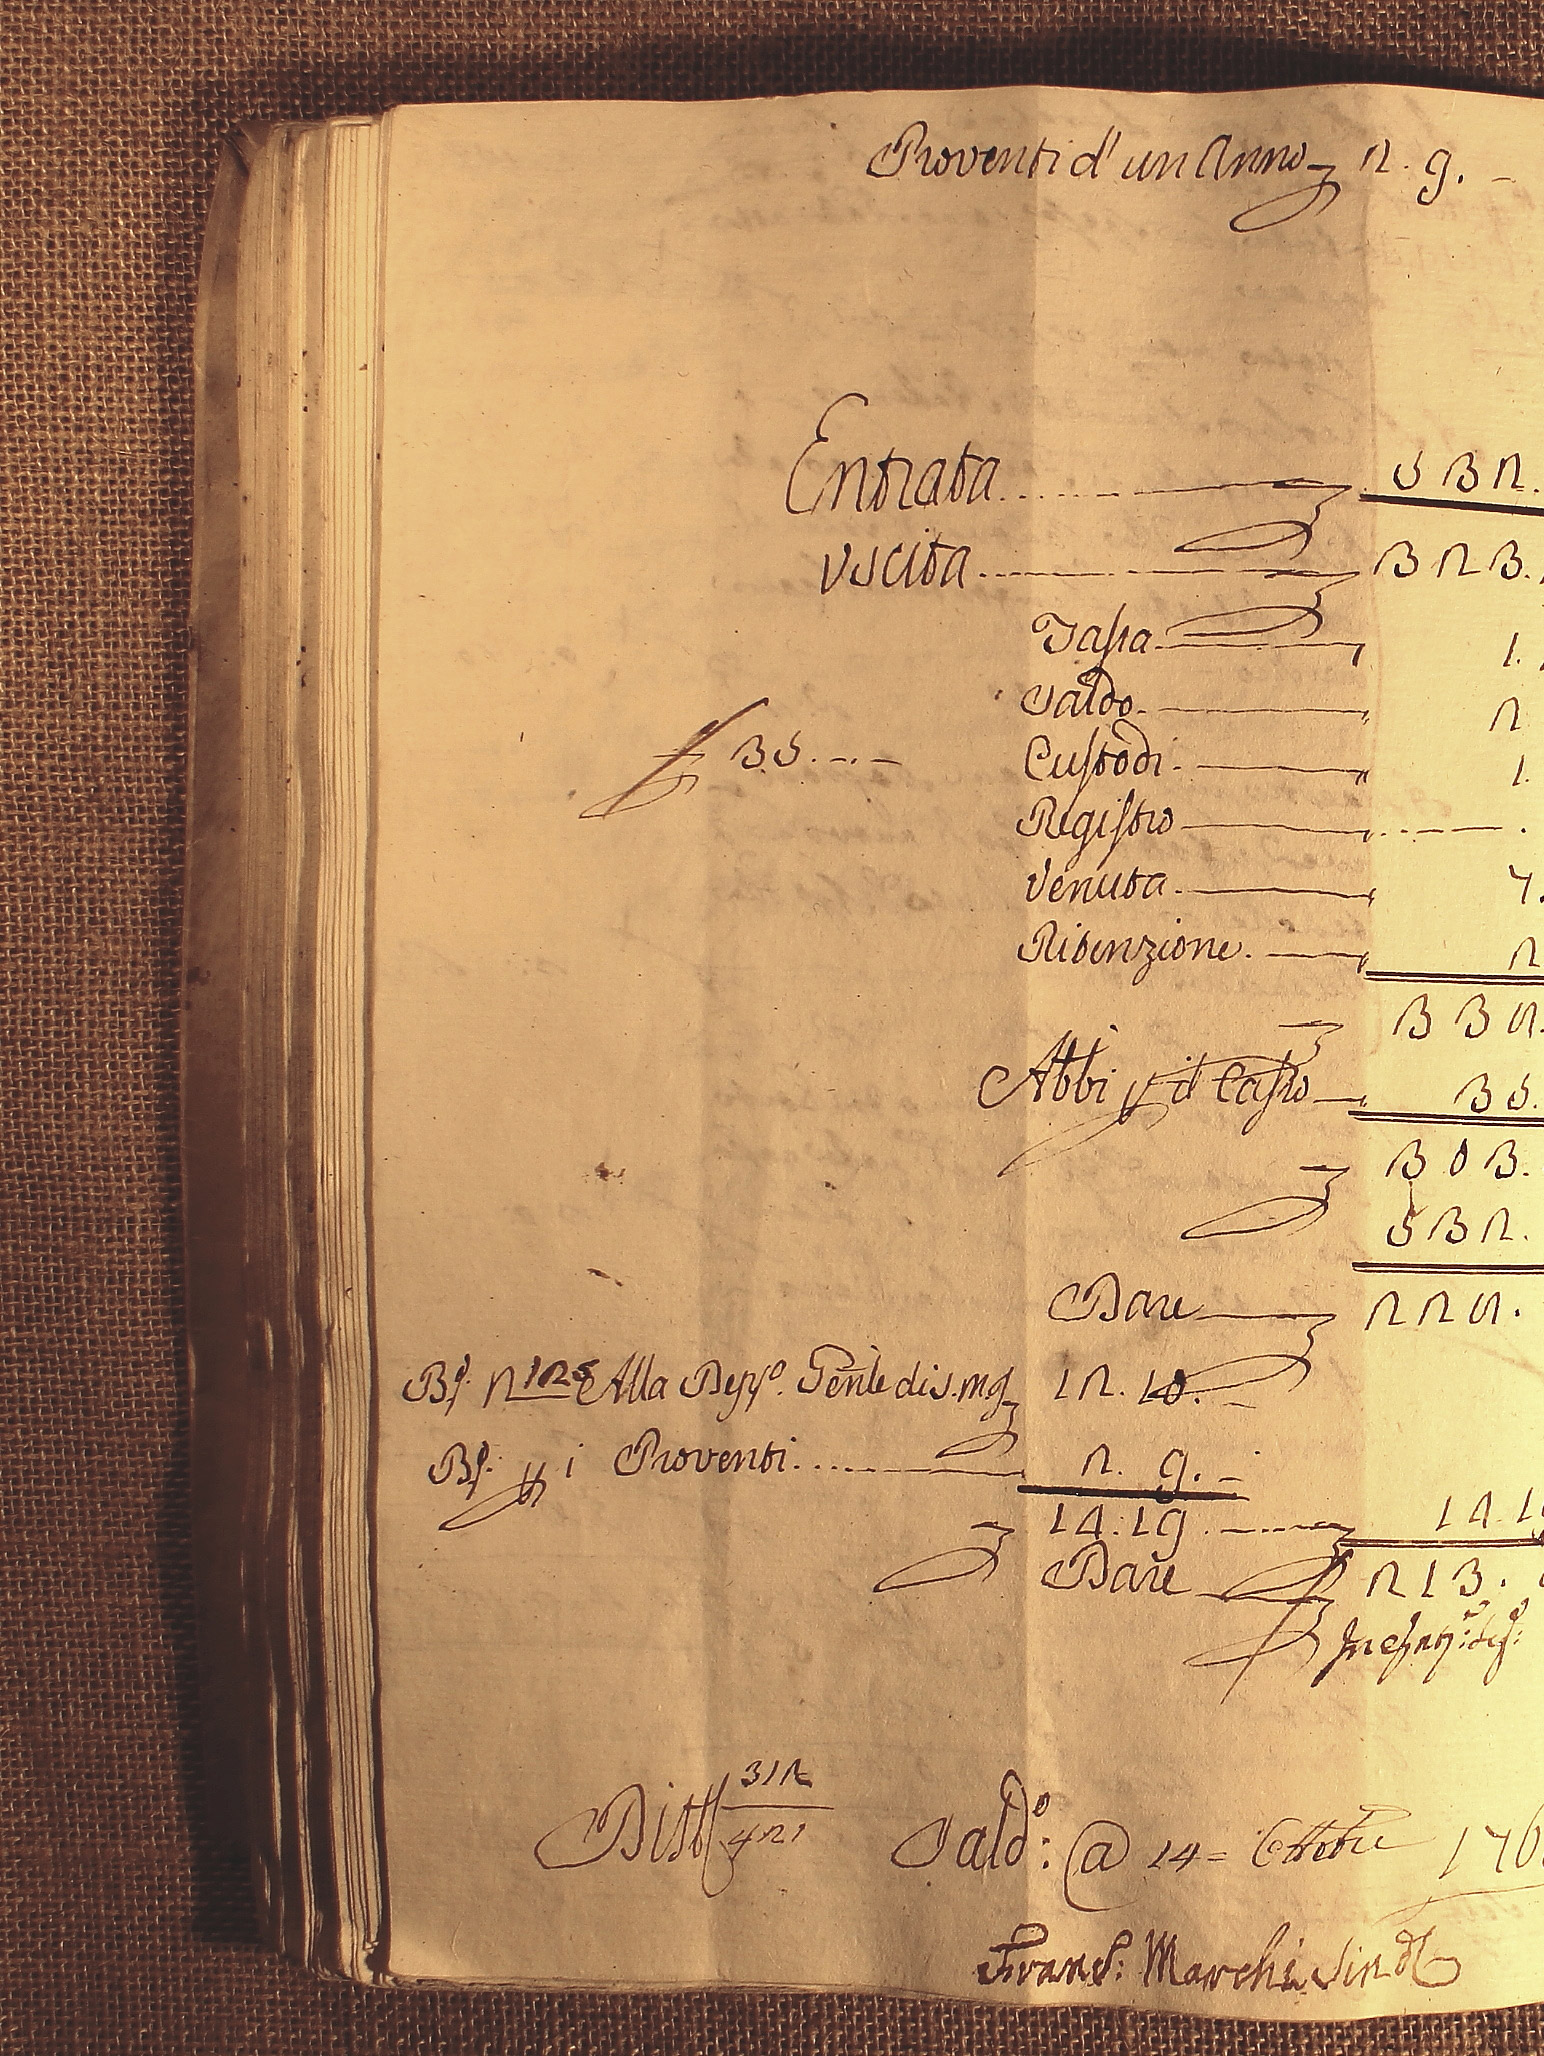 Proventi d'un Anno 2. 9. -
Entrata 532.
Uscita 323.
Tassa 1.
Saldo 2
35. Custodi 1.
Registro
Venuta 7.
Ritenzione. 2
338.
Abbi p il Casso 35.
303.
532.
Dare 228.
Alla Depo. Genle di S. 12. 10. -
i Proventi 2. 9. -
14. 19 14. 19
Dare 213.
312
421
Saldo: @ 14 = Ottobre 176
Frans: Marchi Sind